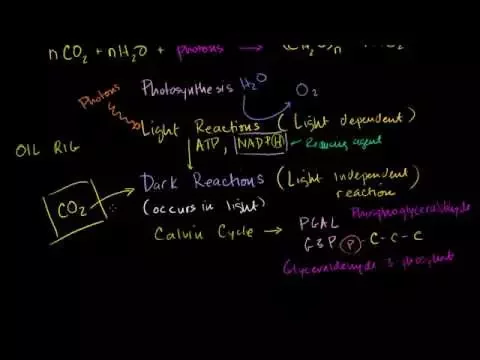 nCO₂ + nH₂O + photons →
Photosynthesis H₂O O₂
Photons
Light Reactions (Light dependent)
ATP, NADP(H) ← Reducing agent
OIL RIG
Dark Reactions (Light independent
reaction)
CO₂
(occurs in light)
Calvin Cycle → PGAL
G3P P - C - C - C
Glyceraldehyde 3 phosphate